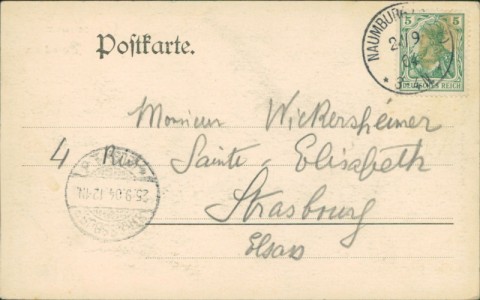 Postkarte.
NAUMBURG
5 5
DEUTSCHES REICH
Monsieur Wickersheimer
4 Rue Sainte-Elisabeth
Strasbourg
Elsass
25.9.04.12-1N.